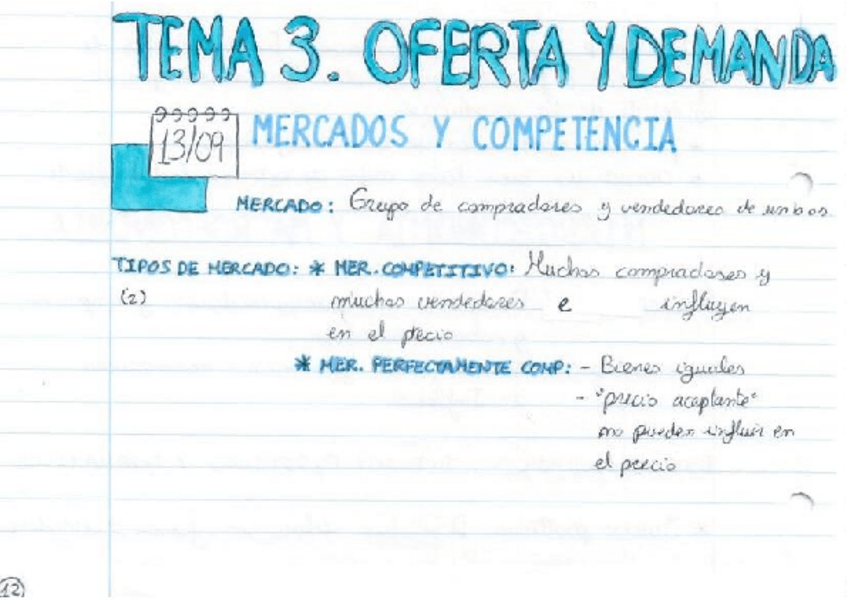 TEMA 3. OFERTA Y DEMANDA
13/09
MERCADOS Y COMPETENCIA
MERCADO: Grupo de compradores y vendedores de un bos
TIPOS DE MERCADO: * MER. COMPETITIVO: Muchos compradores y
(2) muchos vendedores e influyen
en el precio
* MER. PERFECTAMENTE COMP: - Bienes iguales
- "precio aceptante"
no pueden influir en
el precio
12